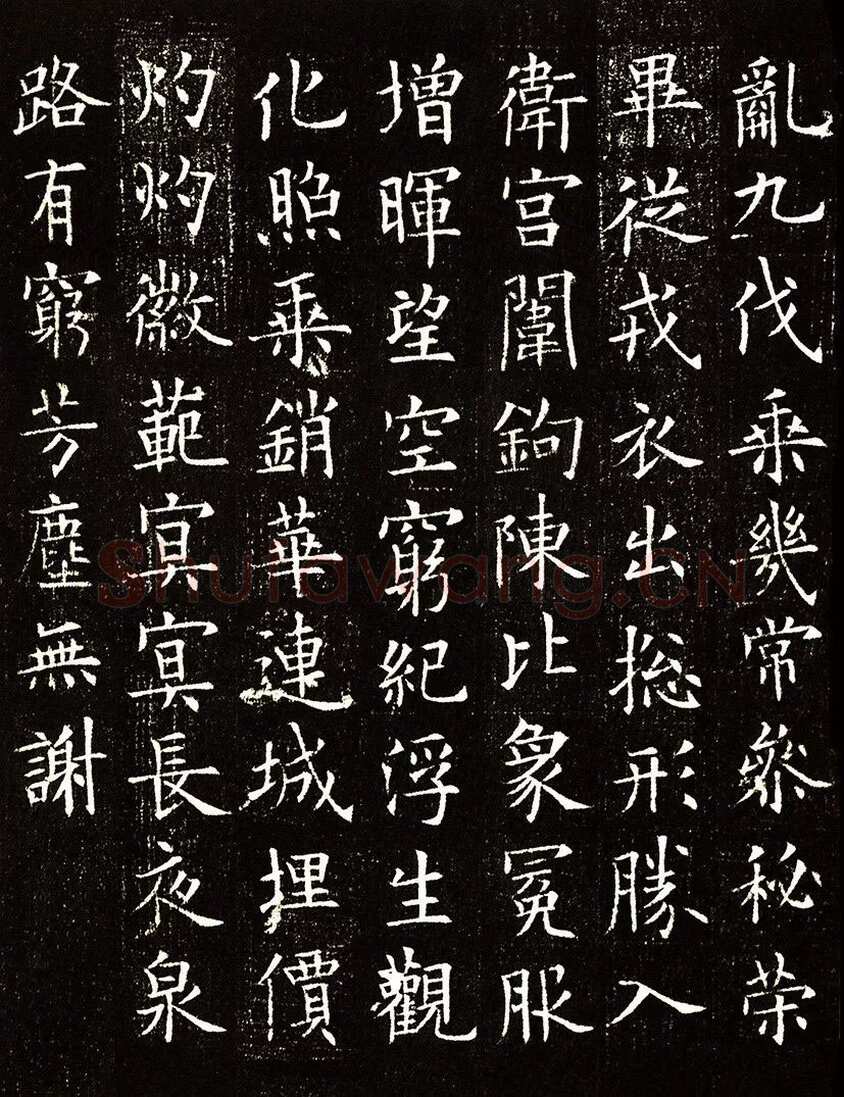 亂九伐乘幾常參秘荣
畢從戎衣出摠形勝入
衛宫闈鉤陳比象冕服
增暉望空窮紀浮生觀
化照乘銷華連城埋價
灼灼徽範寘寘長夜泉
路有窮芳塵無謝
Shufawang.CN